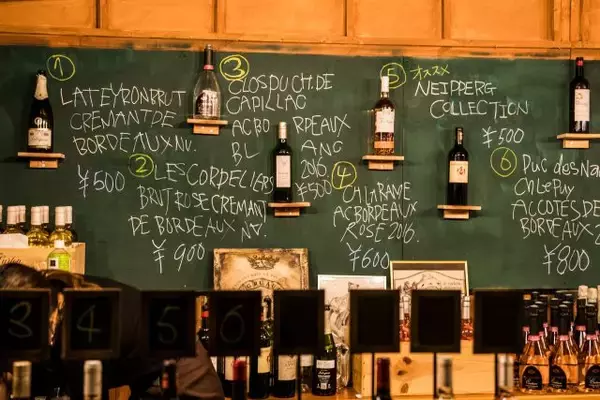 ①
LATEYRON BRUT
CREMANT DE
BORDEAUX NV.
¥500
②
LES CORDELIERS
BRUT ROSE CREMANT
DE BORDEAUX NV.
¥900
③
CLOS PUCH. DE
CAPILLAC
AC BORDEAUX
BLANC
2016
¥500
④
CH LA RAME
AC BORDEAUX
ROSE 2016.
¥600
⑤
オススメ
NEIPPERG
COLLECTION
¥500
⑥
DUC des NA
Ch Le Puy
AC COTES DE
BORDEAUX
2017
¥800
3
4
5
6